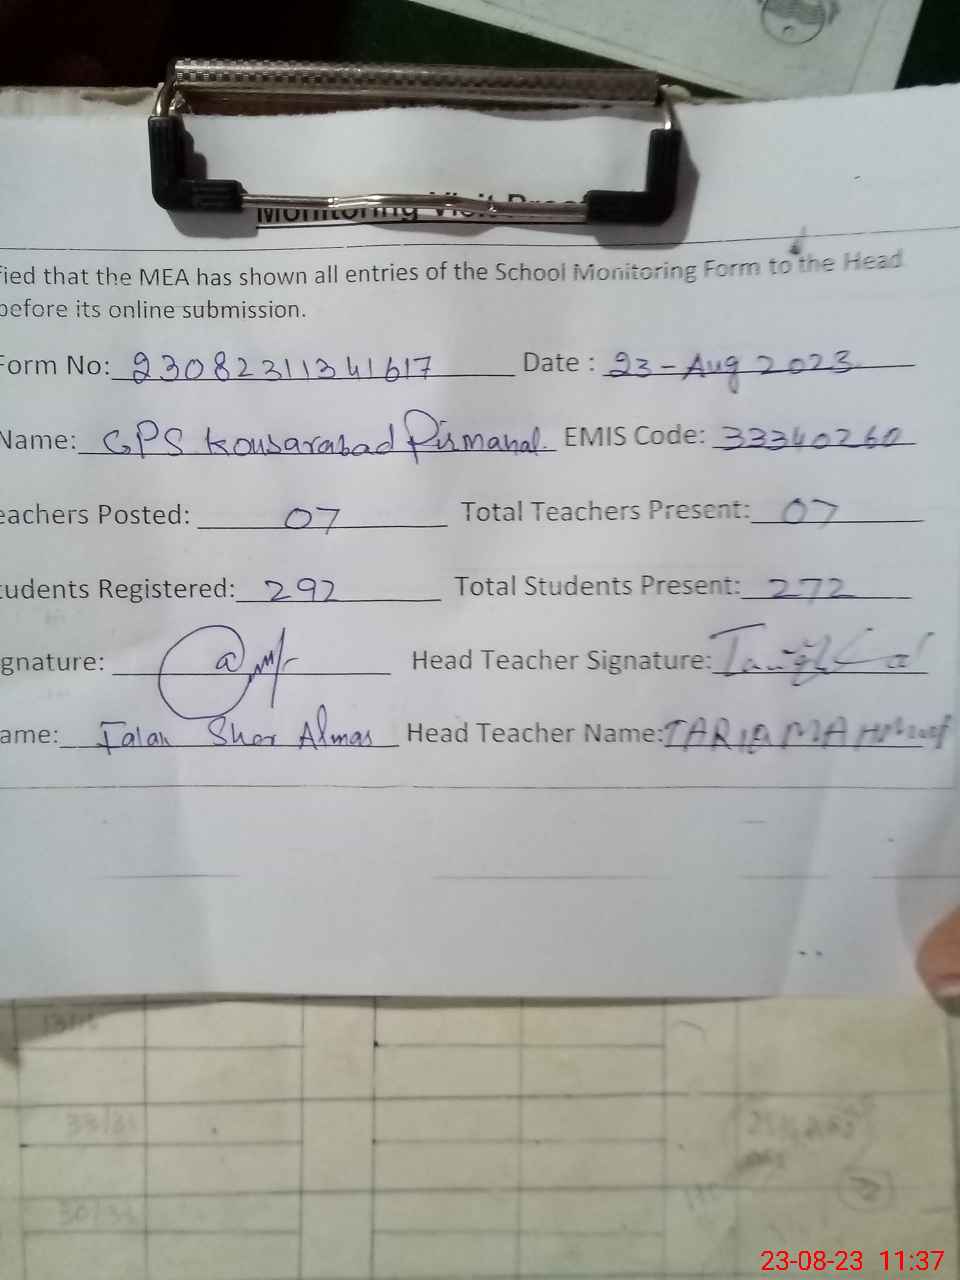 Monitoring Visit Proof
fied that the MEA has shown all entries of the School Monitoring Form to the Head
before its online submission.
Form No: 23082311341617 Date : 23-Aug 2023
Name: GPS Kousarabad Pirmahal. EMIS Code: 33340260
eachers Posted: 07 Total Teachers Present: 07
tudents Registered: 292 Total Students Present: 272
gnature: Head Teacher Signature:
ame: Falak Sher Almas Head Teacher Name: TARIQ MAHMOOD
23-08-23 11:37